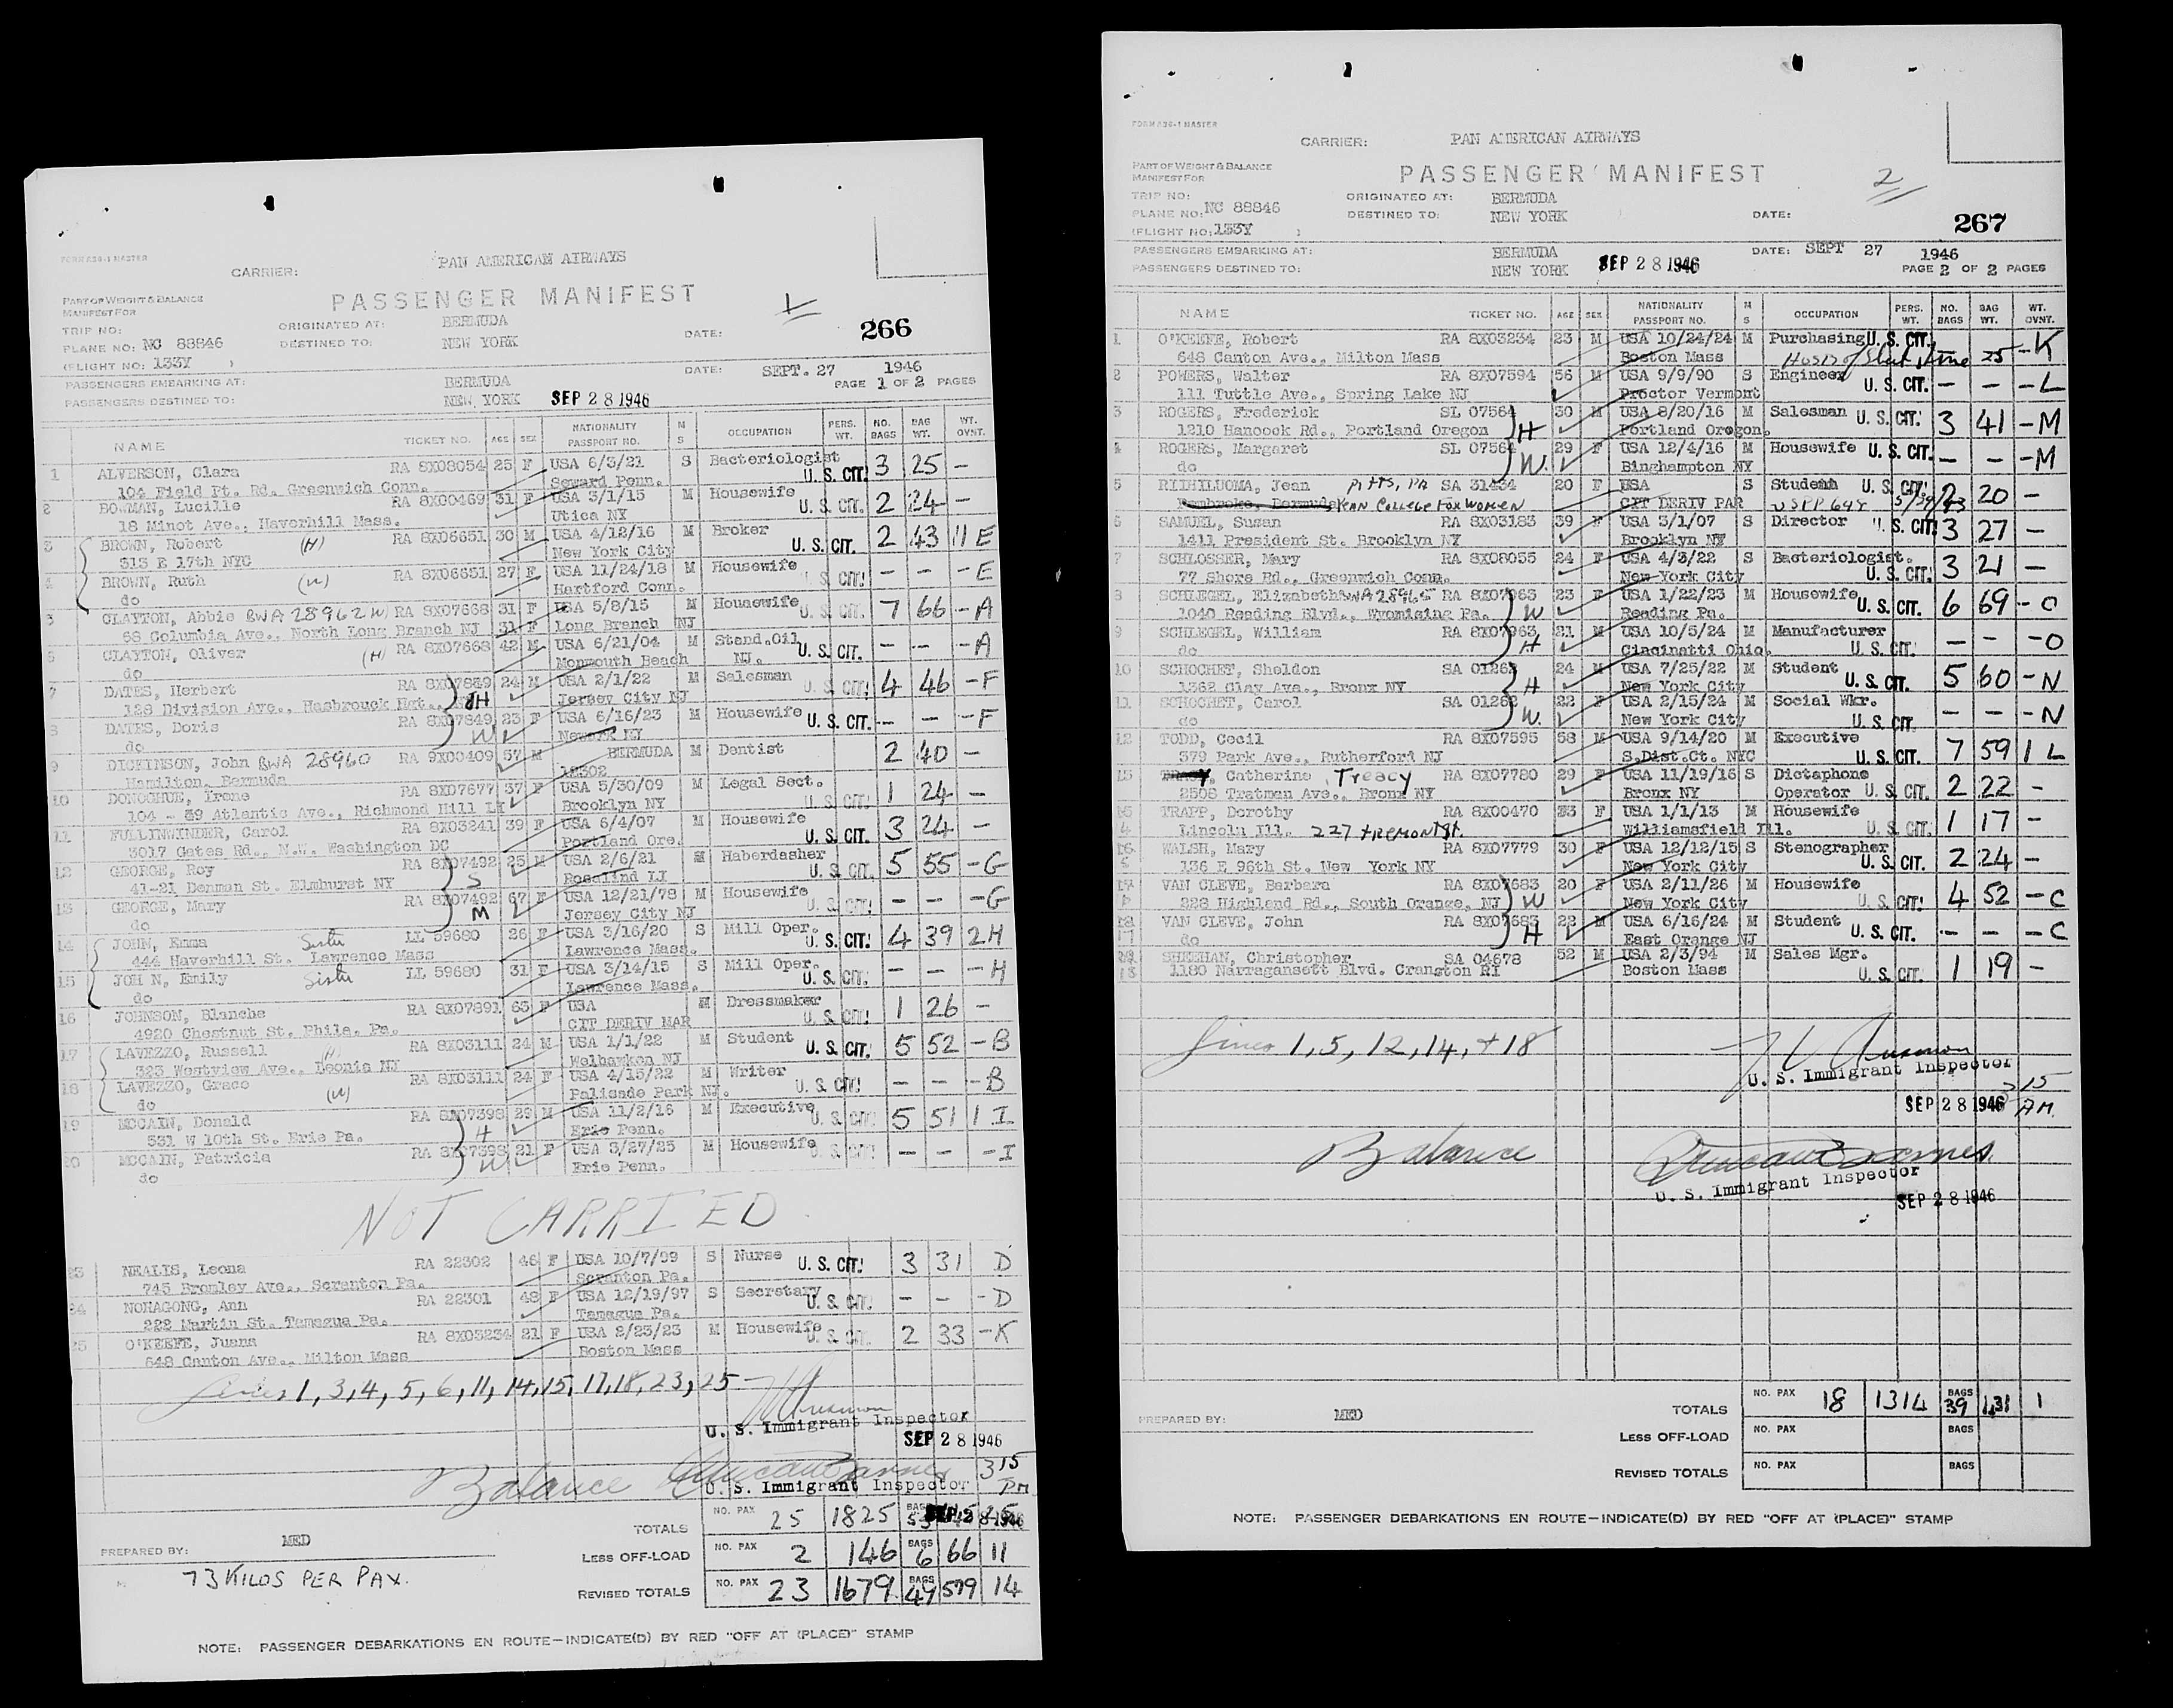 FORM 230-1 MASTER
CARRIER: PAN AMERICAN AIRWAYS
PART OF WEIGHT & BALANCE
MANIFEST FOR
PASSENGER MANIFEST
1
TRIP NO: ORIGINATED AT: BERMUDA DATE: 266
PLANE NO: NC 88846 DESTINED TO: NEW YORK
(FLIGHT NO: 133Y )
PASSENGERS EMBARKING AT: BERMUDA DATE: SEPT. 27 1946
PASSENGERS DESTINED TO: NEW YORK SEP 28 1946 PAGE 1 OF 2 PAGES
NAME TICKET NO. AGE SEX NATIONALITY PASSPORT NO. M S OCCUPATION PERS. WT. NO. BAGS BAG WT. WT. OVNT.
1 ALVERSON, Clara RA 8X08054 25 F USA 6/3/21 S Bacteriologist U. S. CIT. 3 25 -
104 Field Pt. Rd. Greenwich Conn. Seward Penn.
2 BOWMAN, Lucille RA 8X00469 31 F USA 3/1/15 M Housewife U. S. CIT. 2 24 -
18 Minot Ave., Haverhill Mass. Utica NY
3 BROWN, Robert (H) RA 8X06651 30 M USA 4/12/16 M Broker U. S. CIT. 2 43 11 E
315 E 17th NYC New York City
4 BROWN, Ruth (W) RA 8X06651 27 F USA 11/24/18 M Housewife U. S. CIT. - - - E
do Hartford Conn.
5 CLAYTON, Abbie BWA 28962 W) RA 8X07668 31 F USA 5/8/15 M Housewife U. S. CIT. 7 66 - A
68 Columbia Ave., North Long Branch NJ 31 F Long Branch NJ
6 CLAYTON, Oliver (H) RA 8X07668 42 M USA 6/21/04 M Stand.Oil U. S. CIT. - - - A
do Monmouth Beach NJ.
7 DATES, Herbert RA 8X07849 24 M USA 2/1/22 M Salesman U. S. CIT. 4 46 - F
128 Division Ave., Hasbrouck Hgt. H Jersey City NJ
8 DATES, Doris RA 8X07849 23 F USA 6/16/23 M Housewife U. S. CIT. - - - F
do W Newark NJ
9 DICKINSON, John BWA 28960 RA 9X00409 57 M BERMUDA M Dentist 2 40 -
Hamilton, Bermuda 12302
10 DONOGHUE, Irene RA 8X07677 37 F USA 5/30/09 M Legal Sect. U. S. CIT. 1 24 -
104 - 39 Atlantic Ave., Richmond Hill LI Brooklyn NY
11 FULLINWINDER, Carol RA 8X03241 39 F USA 6/4/07 M Housewife U. S. CIT. 3 24 -
3017 Gates Rd., N.W. Washington DC Portland Ore.
12 GEORGE, Roy RA 8X07492 25 M USA 2/6/21 M Haberdasher U. S. CIT. 5 55 - G
41-21 Denman St. Elmhurst NY S Rosalind LI
13 GEORGE, Mary RA 8X07492 67 F USA 12/21/78 M Housewife U. S. CIT. - - - G
do M Jersey City NJ
14 JOHN, Emma Sister LL 59680 26 F USA 3/16/20 S Mill Oper. U. S. CIT. 4 39 2 H
444 Haverhill St. Lawrence Mass Lawrence Mass.
15 JOH N, Emily Sister LL 59680 31 F USA 3/14/15 S Mill Oper. U. S. CIT. - - - H
do Lawrence Mass.
16 JOHNSON, Blanche RA 8X07891 63 F USA M Dressmaker U. S. CIT. 1 26 -
4920 Chestnut St. Phila. Pa. CIT DERIV MAR
17 LAVEZZO, Russell (H) RA 8X03111 24 M USA 1/1/22 M Student U. S. CIT. 5 52 - B
323 Westview Ave., Leonia NJ Weehawken NJ
18 LAVEZZO, Grace RA 8X03111 24 F USA 4/15/22 M Writer U. S. CIT. - - - B
do (W) Palisade Park NJ.
19 MCCAIN, Donald RA 8X07398 29 M USA 11/2/16 M Executive U. S. CIT. 5 51 1 I
531 W 10th St. Erie Pa. H Erie Penn.
20 MCCAIN, Patricia RA 8X07398 21 F USA 3/27/25 M Housewife U. S. CIT. - - - I
do W Erie Penn.
NOT CARRIED
23 NEALIS, Leona RA 22302 46 F USA 10/7/99 S Nurse U. S. CIT. 3 31 D
745 Bromley Ave., Scranton Pa. Scranton Pa.
24 NOHAGONG, Ann RA 22301 48 F USA 12/19/97 S Secretary U. S. CIT. - - - D
222 Martin St. Tamaqua Pa. Tamaqua Pa.
25 O'KEEFE, Juana RA 8X03234 21 F USA 2/23/23 M Housewife U. S. CIT. 2 33 - K
648 Canton Ave., Milton Mass Boston Mass
Lines 1, 3, 4, 5, 6, 11, 14, 15, 17, 18, 23, 25
U. S. Immigrant Inspector
SEP 28 1946
Balance
U. S. Immigrant Inspector
3 15 PM
TOTALS NO. PAX 25 1825 BAGS
PREPARED BY: MED
LESS OFF-LOAD NO. PAX 2 146 BAGS 6 66 11
73 KILOS PER PAX.
REVISED TOTALS NO. PAX 23 1679 BAGS 47 579 14
NOTE: PASSENGER DEBARKATIONS EN ROUTE—INDICATE(D) BY RED "OFF AT (PLACE)" STAMP
FORM 230-1 MASTER
CARRIER: PAN AMERICAN AIRWAYS
PART OF WEIGHT & BALANCE
MANIFEST FOR
PASSENGER MANIFEST
2
TRIP NO: ORIGINATED AT: BERMUDA
PLANE NO: NC 88846 DESTINED TO: NEW YORK DATE: 267
(FLIGHT NO: 133Y )
PASSENGERS EMBARKING AT: BERMUDA DATE: SEPT 27 1946
PASSENGERS DESTINED TO: NEW YORK SEP 28 1946 PAGE 2 OF 2 PAGES
NAME TICKET NO. AGE SEX NATIONALITY PASSPORT NO. M S OCCUPATION PERS. WT. NO. BAGS BAG WT. WT. OVNT.
1 O'KEEFE, Robert RA 8X03234 23 M USA 10/24/24 M Purchasing U. S. CIT. 25 - K
648 Canton Ave., Milton Mass Boston Mass
2 POWERS, Walter RA 8X07594 56 M USA 9/9/90 S Engineer U. S. CIT. - - - L
111 Tuttle Ave., Spring Lake NJ Proctor Vermont
3 ROGERS, Frederick SL 07564 30 M USA 8/20/16 M Salesman U. S. CIT. 3 41 - M
1210 Hancock Rd., Portland Oregon H Portland Oregon.
4 ROGERS, Margaret SL 07564 29 F USA 12/4/16 M Housewife U. S. CIT. - - - M
do W. Binghampton NY
5 RIIHILUOMA, Jean Pitts, PA SA 31434 20 F USA S Student U. S. CIT. 2 20 -
Pembroke, Bermuda Penn College For Women CIT DERIV PAR USPP 649
6 SAMUEL, Susan RA 8X03183 39 F USA 3/1/07 S Director U. S. CIT. 3 27 -
1411 President St. Brooklyn NY Brooklyn NY
7 SCHLOSSER, Mary RA 8X08055 24 F USA 4/3/22 S Bacteriologist. U. S. CIT. 3 21 -
77 Shore Rd., Greenwich Conn. New York City
8 SCHLEGEL, Elizabeth BWA 28965 RA 8X07963 23 F USA 1/22/23 M Housewife U. S. CIT. 6 69 - O
1040 Reading Blvd., Wyomising Pa. W Reading Pa.
9 SCHLEGEL, William RA 8X07963 21 M USA 10/5/24 M Manufacturer U. S. CIT. - - - O
do H Cincinatti Ohio.
10 SCHOCHET, Sheldon SA 01262 24 M USA 7/25/22 M Student U. S. CIT. 5 60 - N
1362 Clay Ave., Bronx NY H New York City
11 SCHOCHET, Carol SA 01262 22 F USA 2/15/24 M Social Wkr. U. S. CIT. - - - N
do W. New York City
12 TODD, Cecil RA 8X07595 58 M USA 9/14/20 M Executive U. S. CIT. 7 59 1 L
379 Park Ave., Rutherford NJ S.Dist.Ct. NYC
13 Catherine Treacy RA 8X07780 29 F USA 11/19/16 S Dictaphone
2508 Tratman Ave., Bronx NY Bronx NY Operator U. S. CIT. 2 22 -
TRAPP, Dorothy RA 8X00470 33 F USA 1/1/13 M Housewife
Lincoln Ill. 227 Tremont St. Williamsfield Ill. U. S. CIT. 1 17 -
WALSH, Mary RA 8X07779 30 F USA 12/12/15 S Stenographer
136 E 96th St. New York NY New York City U. S. CIT. 2 24 -
VAN CLEVE, Barbara RA 8X07683 20 F USA 2/11/26 M Housewife U. S. CIT. 4 52 - C
228 Highland Rd., South Orange, NJ W New York City
VAN CLEVE, John RA 8X07683 22 M USA 6/16/24 M Student U. S. CIT. - - - C
do H East Orange NJ
SHEEHAN, Christopher SA 04678 52 M USA 2/3/94 M Sales Mgr.
1180 Narragansett Blvd. Cranston RI Boston Mass U. S. CIT. 1 19 -
Lines 1, 5, 12, 14, + 18
U. S. Immigrant Inspector
SEP 28 1946 3 15 PM
Balance
U. S. Immigrant Inspector
SEP 28 1946
TOTALS NO. PAX 18 1314 BAGS 39 1
PREPARED BY: MED
LESS OFF-LOAD NO. PAX BAGS
REVISED TOTALS NO. PAX BAGS
NOTE: PASSENGER DEBARKATIONS EN ROUTE—INDICATE(D) BY RED "OFF AT (PLACE)" STAMP